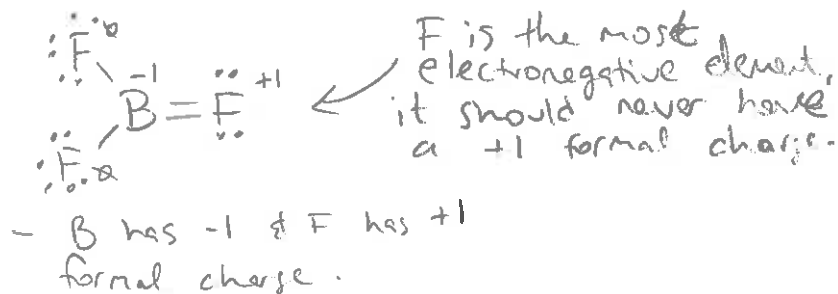 F is the most
electronegative element,
it should never have
a +1 formal charge.
F
-1
B = F +1
F
- B has -1 & F has +1
formal charge.